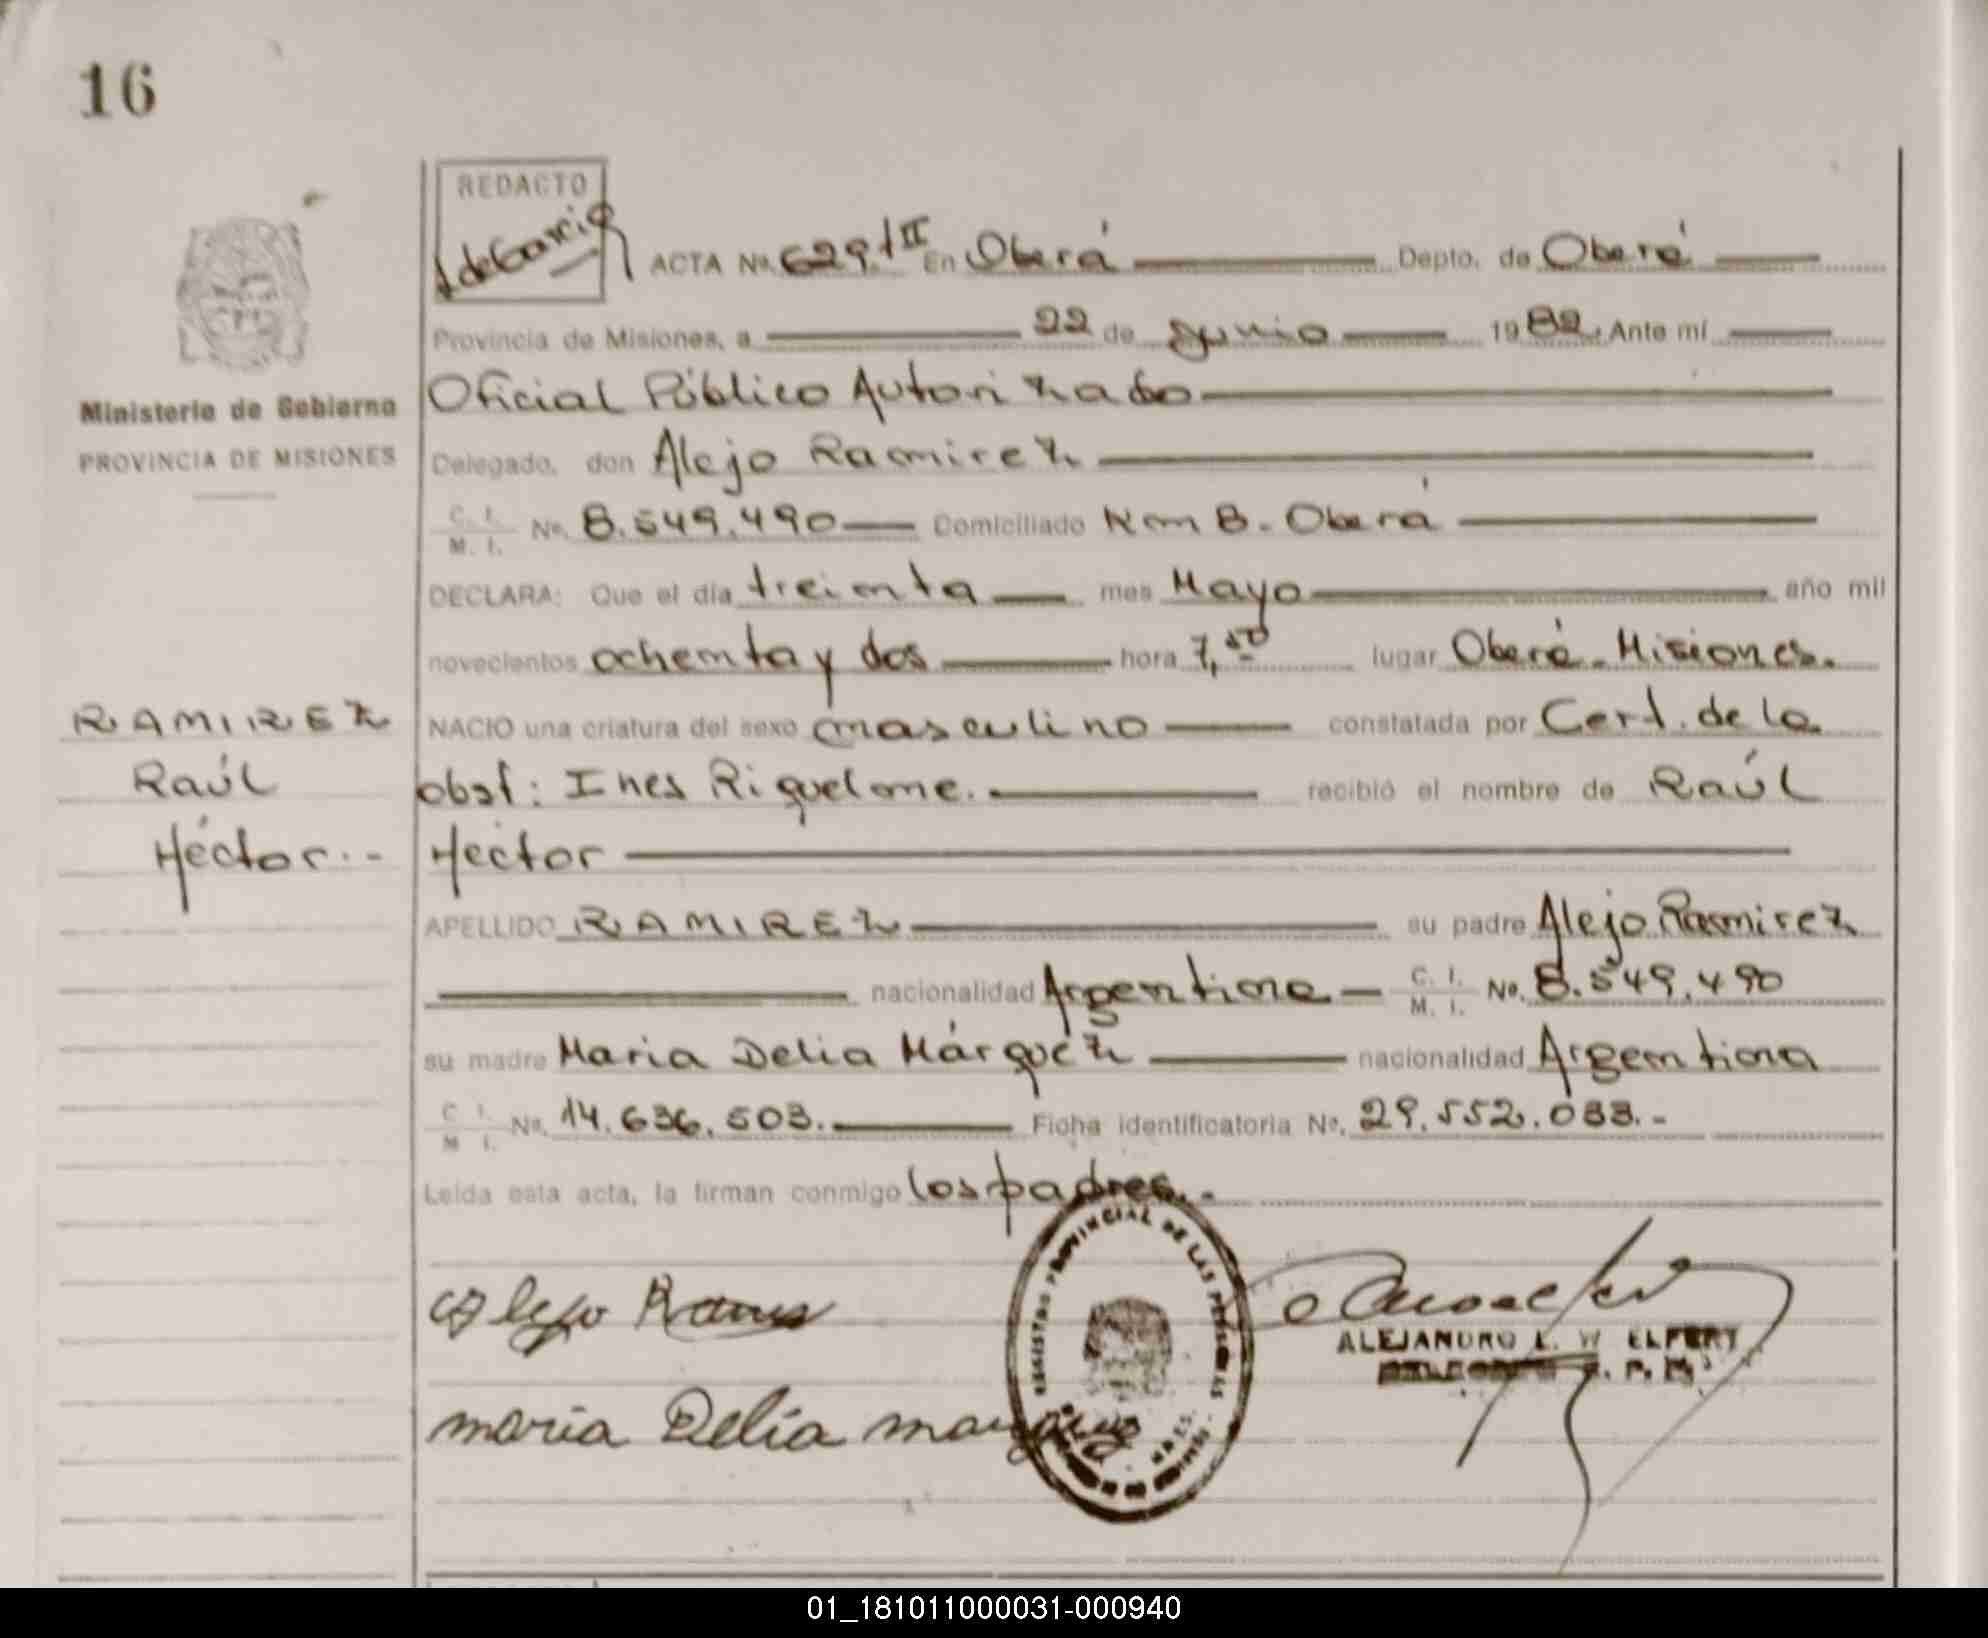 16
REDACTO
ACTA Nº. 629.tII En Oberá Depto. de Oberá
Provincia de Misiones, a 22 de Junio 1982. Ante mí
Ministerio de Gobierno
PROVINCIA DE MISIONES
Oficial Público Autorizado
Delegado, don Alejo Ramirez
C. I. M. I. Nº. 8.549.490 Domiciliado Km 8. Oberá
DECLARA: Que el día treinta mes Mayo año mil
novecientos ochenta y dos hora 7,50 lugar Oberá. Misiones.
RAMIREZ
Raúl
Héctor.-
NACIO una criatura del sexo masculino constatada por Cert. de la
obst: Ines Riquelme. recibió el nombre de Raúl
Héctor
APELLIDO RAMIREZ su padre Alejo Ramirez
nacionalidad Argentina C. I. M. I. Nº. 8.549.490
su madre Maria Delia Márquéz nacionalidad Argentina
C I. M I. Nº. 14.636.503. Ficha identificatoria Nº. 29.552.033.-
Leída esta acta, la firman conmigo los padres.-
REGISTRO PROVINCIAL DE LAS PERSONAS
Alejo
maria Delia
ALEJANDRO L. W ELPERT
01_181011000031-000940